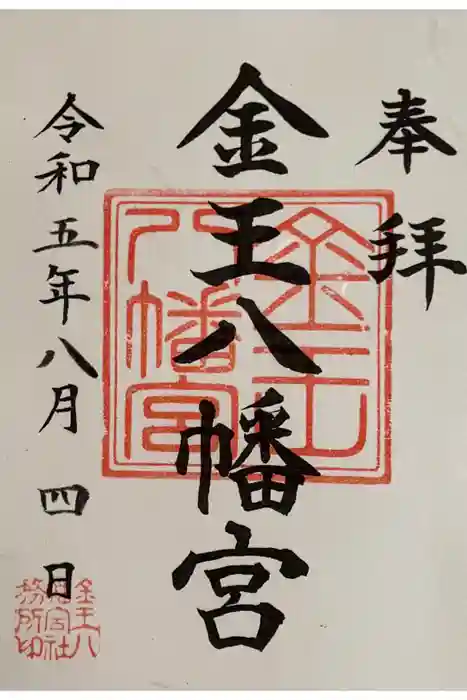 奉拝
金王八幡宮
金王八幡宮
令和五年八月四日
金王八幡宮社務所印